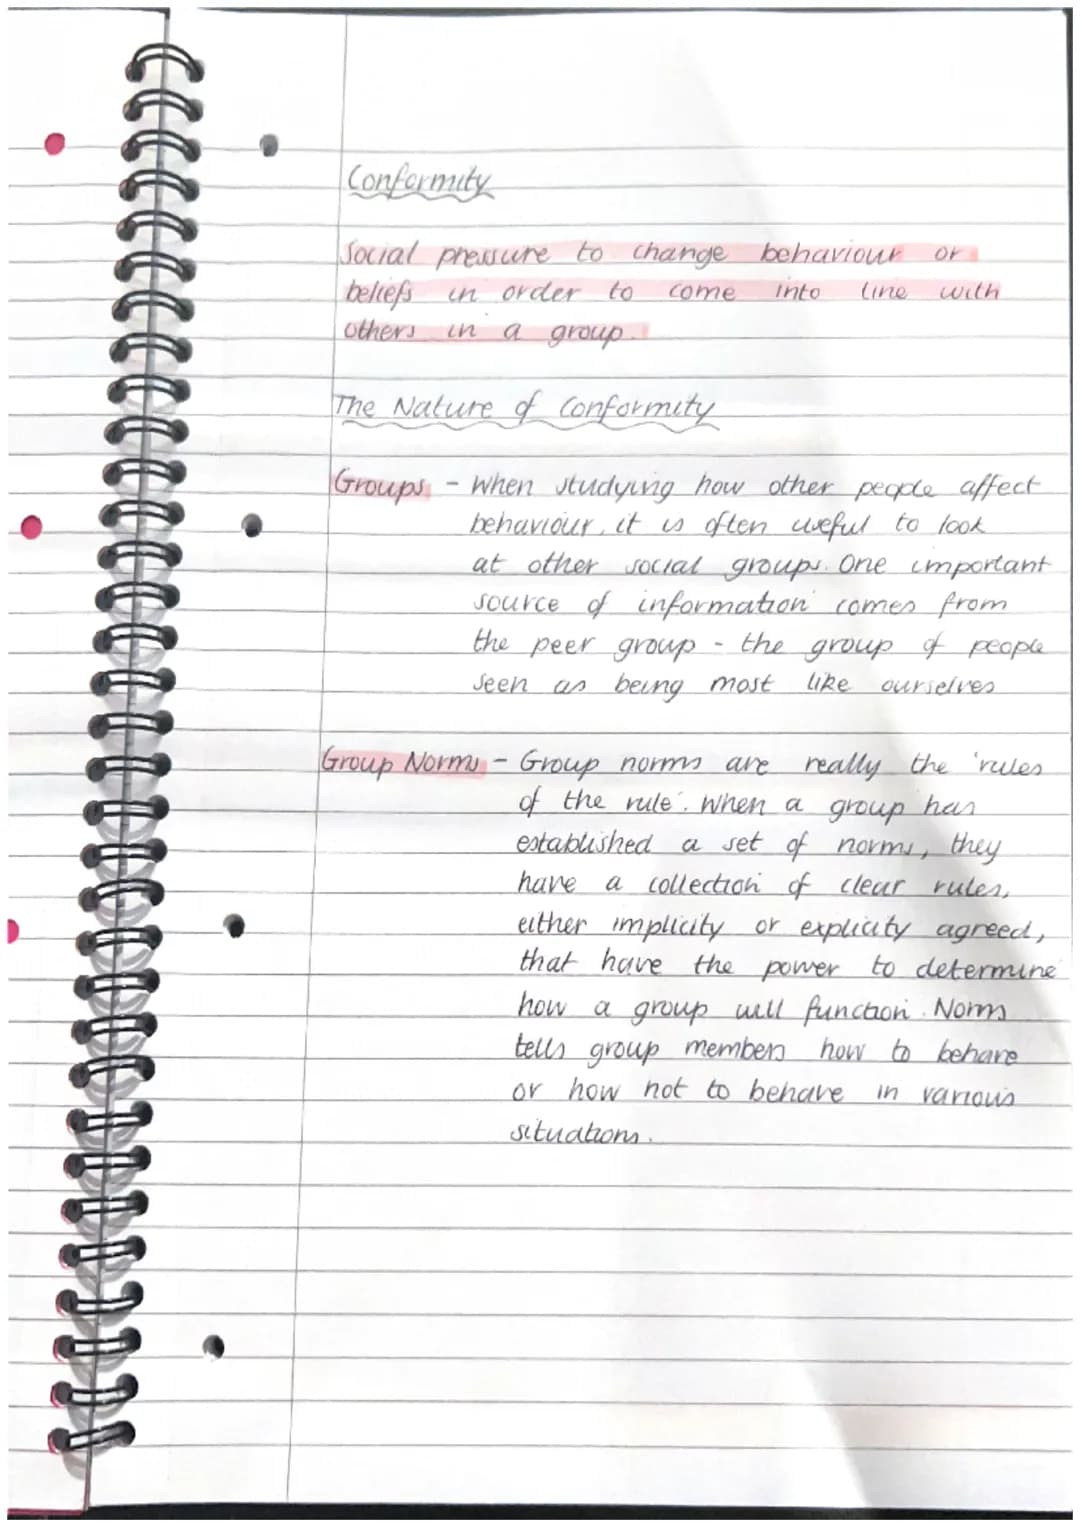 Conformity
Social pressure to change behaviour or
beliefs in order to come into line with
others in a group.
The Nature of Conformity
Groups - When studying how other people affect
behaviour, it is often useful to look
at other social groups. One important
source of information comes from
the peer group - the group of people
seen as being most like ourselves
Group Norms - Group norms are really the 'rules
of the rule'. When a group has
established a set of norms, they
have a collection of clear rules,
either implicity or explicity agreed,
that have the power to determine
how a group will function. Norms
tells group members how to behave
or how not to behave in various
situations.